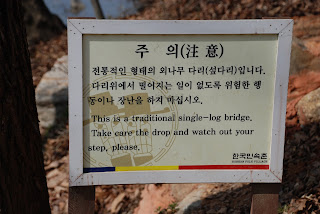 주 의(注 意)
전통적인 형태의 외나무 다리(섶다리)입니다.
다리위에서 떨어지는 일이 없도록 위험한 행
동이나 장난을 하지 마십시오.
This is a traditional single-log bridge.
Take care the drop and watch out your
step, please.
한국민속촌
KOREAN FOLK VILLAGE